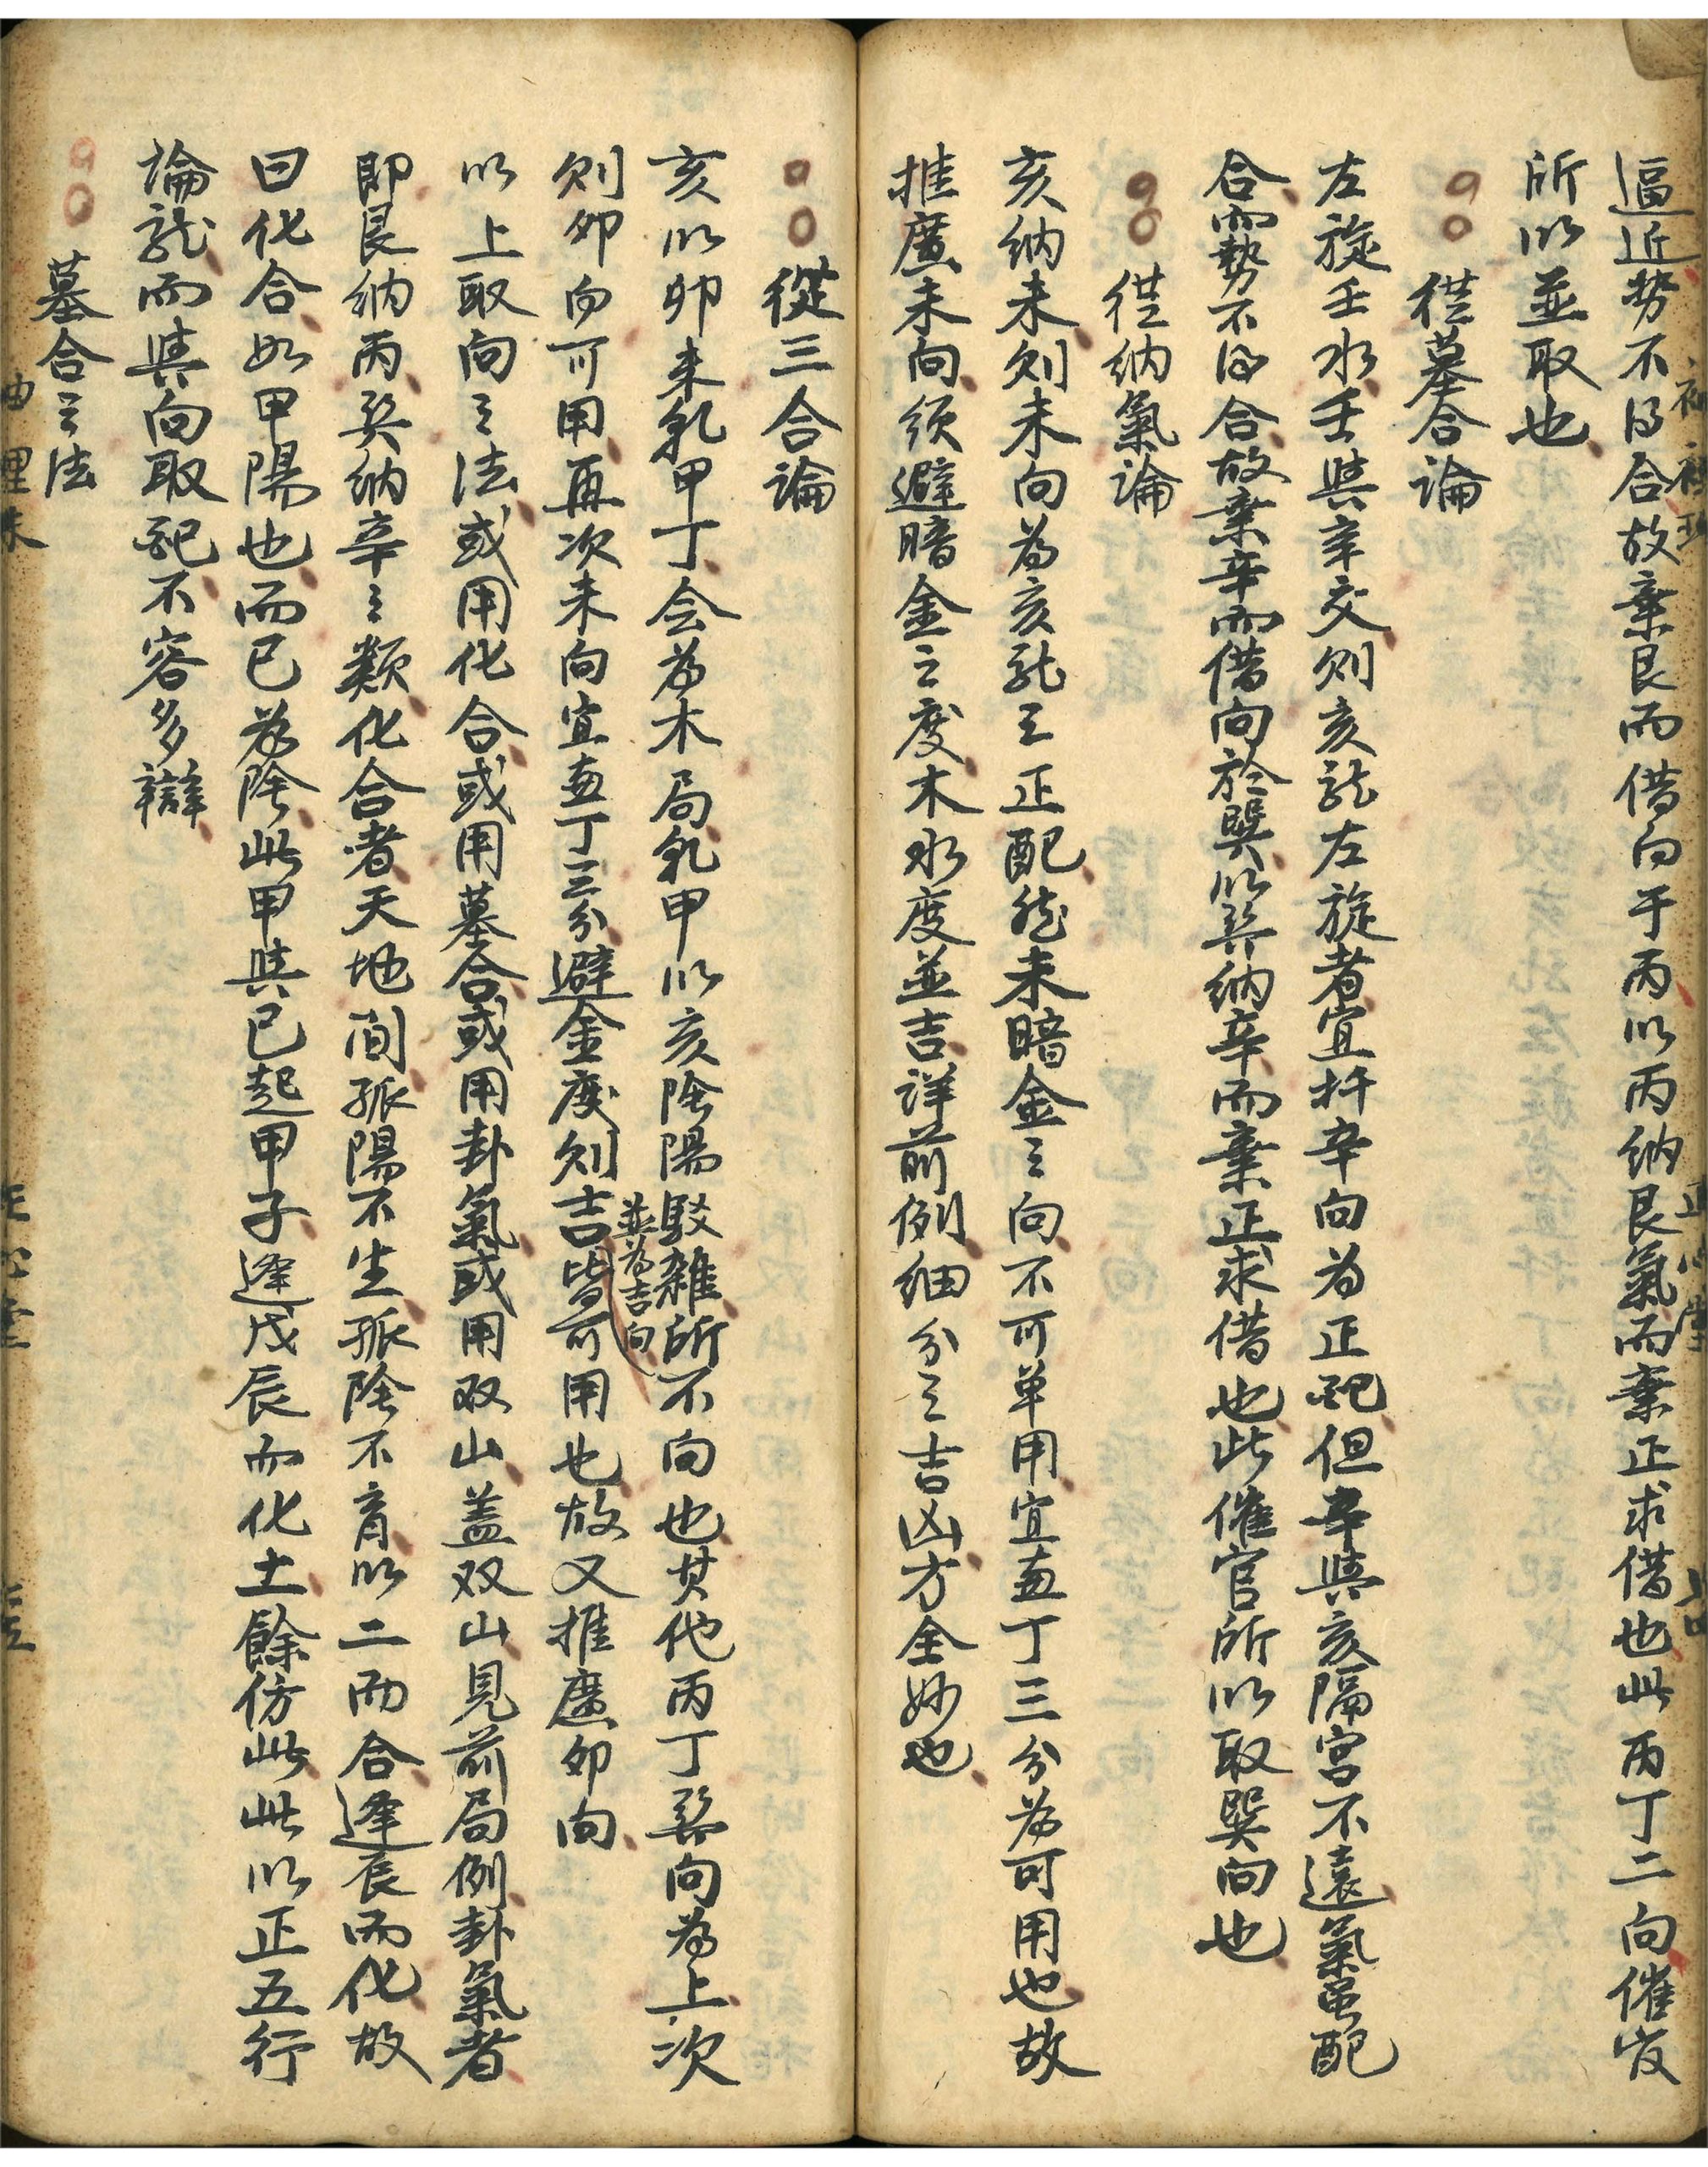 逼近势不得合故棄艮而借向于丙以丙纳艮氣而棄正求借也此丙丁二向催官
所以並取也
從墓合論
左旋壬水壬與辛交則亥龍左旋者宜扦辛向为正配但辛與亥隔宮不遠氣虽配
合而勢不得合故棄辛而借向於巽以巽纳辛而棄正求借也此催官所以取巽向也
從纳氣論
亥纳未则未向為亥龍之正配然未暗金之向不可单用宜兼丁三分為可用也故
推廣未向须避暗金之度木水度並吉详前例细分之吉凶方全妙也
從三合論
亥以卯未乾甲丁会為木局乾甲以亥陰陽駁雜所不向也其他丙丁巽向為上次
则卯向可用再次未向宜兼丁三分避金度则吉皆可用也故又推廣卯向
並為吉向
以上取向之法或用化合或用墓合或用卦氣或用双山盖双山見前局例卦氣者
即艮纳丙巽纳辛之類化合者天地间孤陽不生孤陰不育以二而合逢辰而化故
曰化合如甲陽也而己為陰此甲與己起甲子逢戊辰而化土餘仿此此以正五行
論龍而與向取配不容多辯
墓合之法